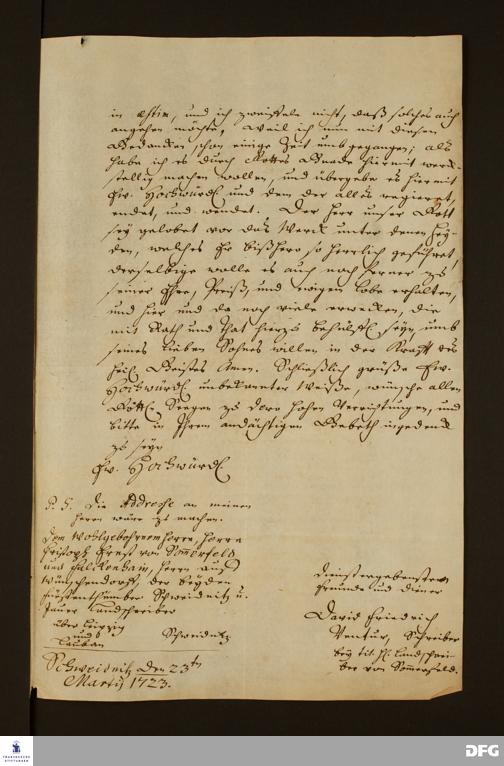 in estim, und ich zweiffele nicht, daß solches auch
angehen möchte, Weil ich nun mit diesen
Gedancken schon einige Zeit umbgegangen; als
habe ich es durch Gottes Gnade hiermit werck-
stellig machen wollen, und übergebe es hiermit
Ew. Hochwürd. und dem der alles regieret,
endet, und wendet. Der Herr unser Gott
sey gelobet vor das Werck unter denen Hey-
den, welches Er bißhero so herrlich geführet,
derselbige wolle es auch noch ferner zu
seiner Ehre, Preiß, und ewigen Lobe erhalten,
und hier und da noch viele erwecken, die
mit Rath und That hierzu behülffl. seyn, umb
seines lieben Sohnes willen in der Krafft des
Heil. Geistes Amen. Schließlich grüße Ew.
Hochwürd. unbekannter Weiße, wünsche allen
Göttl. Seegen zu Dero hohen Verrichtungen, und
bitte in Ihrem andächtigen Gebeth ingedenck
zu seyn
Ew. Hochwürd.
P. S. die Addresse an meinen
Herrn wäre zu machen.
Dem Wohlgebohrnen Herrn, Herrn
Christoph Ernst von Sommerfeld
und Falckenhain, Herrn auf
Wünschendorff, der beyden
Fürstenthümber Schweidnitz u.
Jauer Landschreiber
über Leipzig
und
Lauban
Schweidnitz
Schweidnitz den 23ten
Martij 1723.
Dienstergebenster
Freund und Diener
David Friedrich
Ventur, Schreiber
bey tit. H. Landschrei-
ber von Sommerfeld.
FRANCKESCHE
STIFTUNGEN
DFG